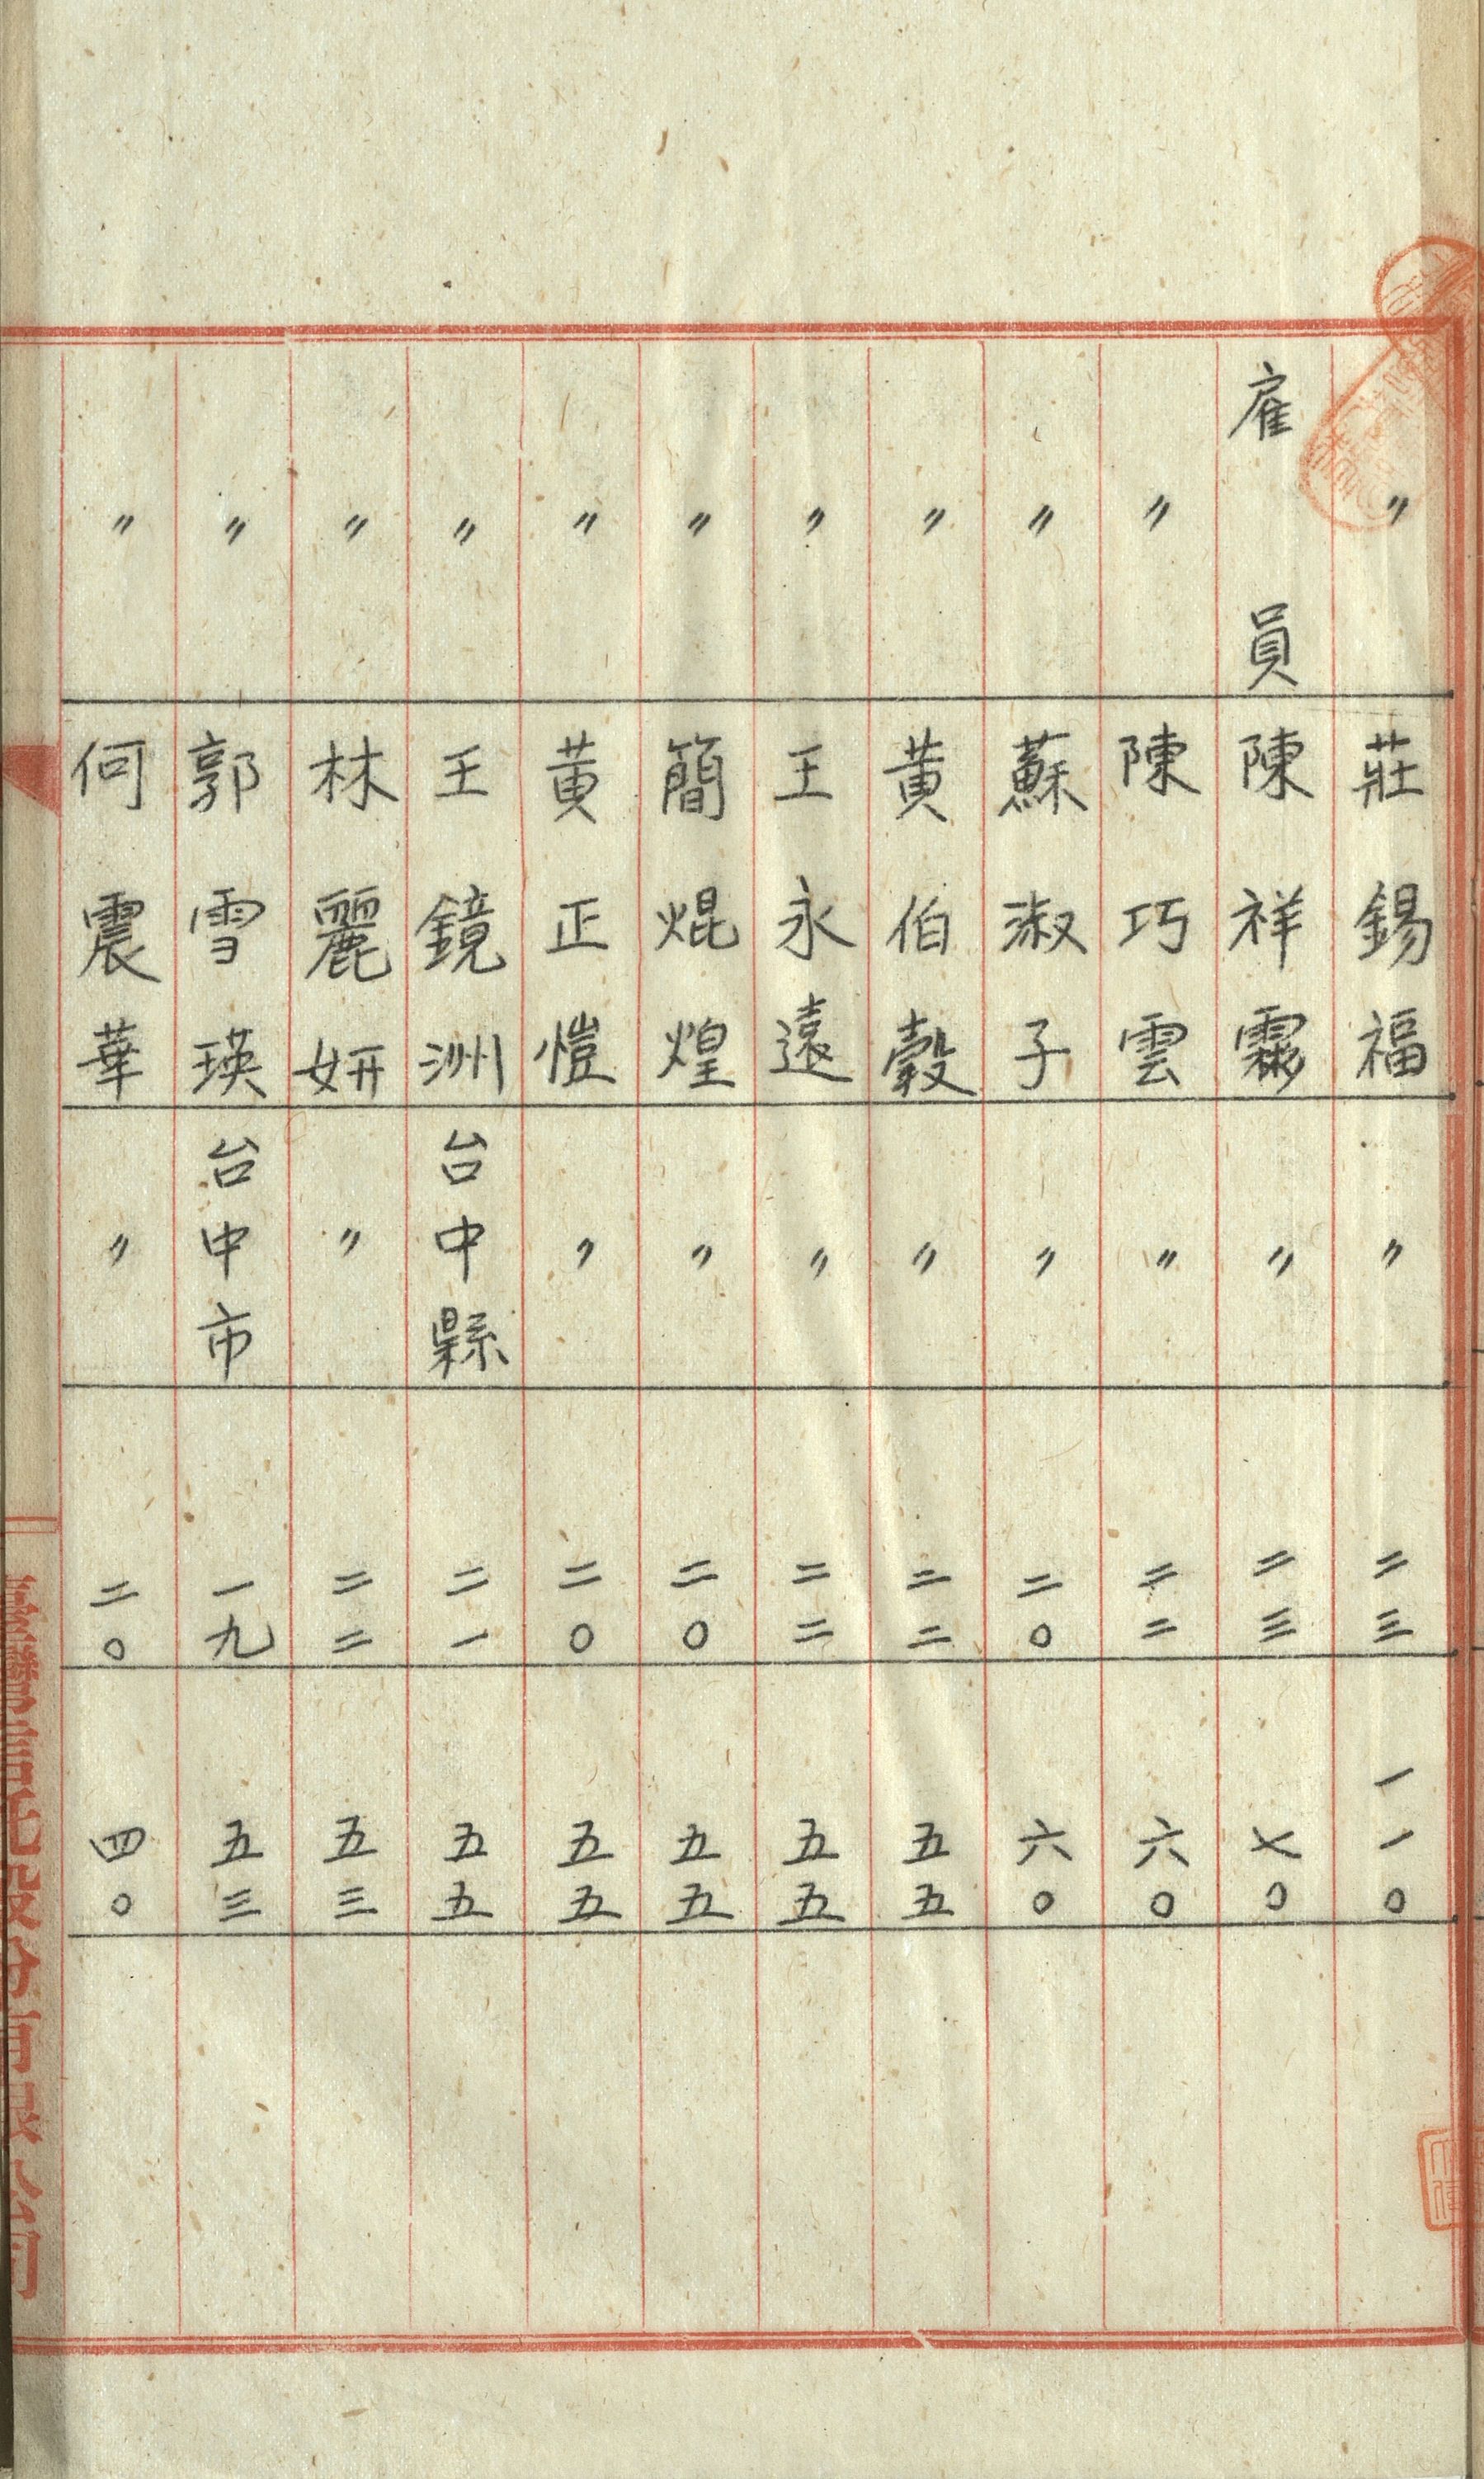 〃 莊錫福 〃 二三 一一〇
雇員 陳祥霖 〃 二三 七〇
〃 陳巧雲 〃 二二 六〇
〃 蘇淑子 〃 二〇 六〇
〃 黃伯穀 〃 二二 五五
〃 王永遠 〃 二二 五五
〃 簡焜煌 〃 二〇 五五
〃 黃正愷 〃 二〇 五五
〃 王鏡洲 台中縣 二一 五五
〃 林麗妍 〃 二二 五三
〃 郭雪瑛 台中市 一九 五三
〃 何震華 〃 二〇 四〇